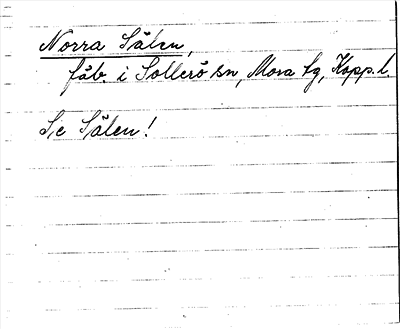 Norra Sälen,
fäb. i Sollerö sn, Mora tg, Kopp. l.
Se Sälen!